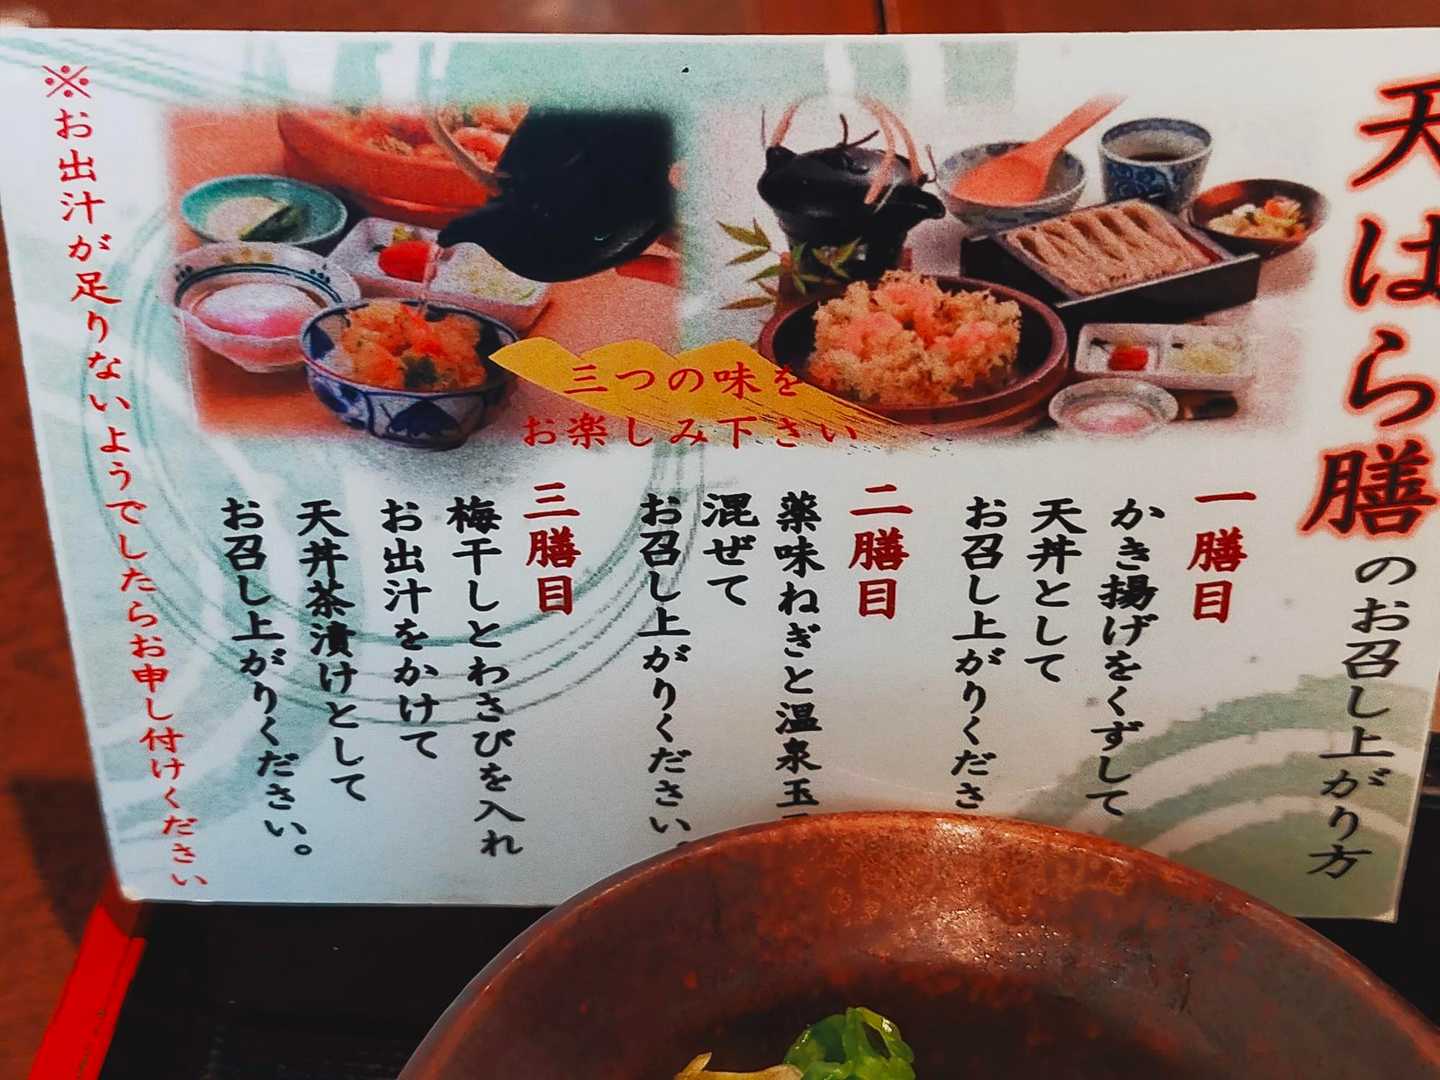 天はら膳のお召し上がり方
三つの味を
お楽しみ下さい
一膳目
かき揚げをくずして
天丼として
お召し上がりくださ
二膳目
薬味ねぎと温泉玉
混ぜて
お召し上がりください。
三膳目
梅干しとわさびを入れ
お出汁をかけて
天丼茶漬けとして
お召し上がりください。
※お出汁が足りないようでしたらお申し付けください